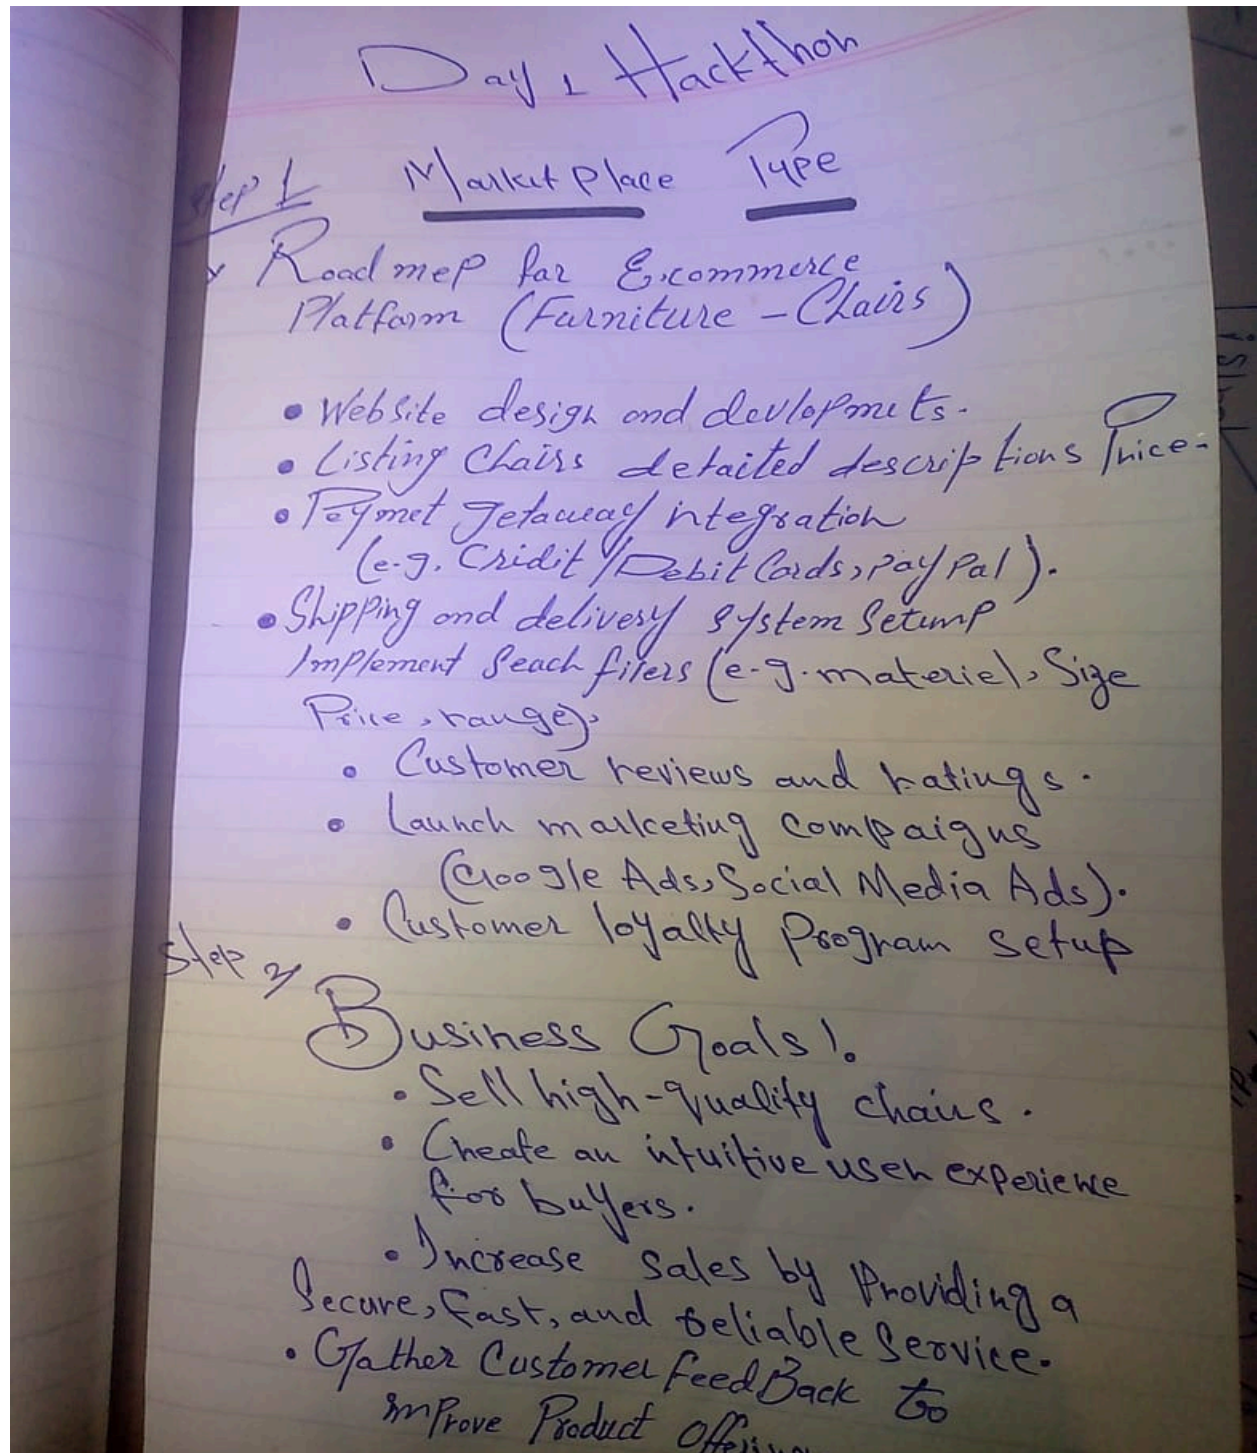 Day 1 Hackthon
Step 1 Market place Type
Road mep for E.commerce
Platform (Furniture - Chairs)
• Website design and devlopmets.
• Listing Chairs detailed descriptions Price.
• Peymet getaway integration
(e.g. Cridit/Debit Cards, PayPal).
• Shipping and delivery system Setump
Implement Seach filers (e.g. materiel, Size
Price, range),
• Customer reviews and ratings.
• Launch marketing compaigns
(Google Ads, Social Media Ads).
• Customer loyalty Program setup
Step 2
Business Goals!.
• Sell high-quality chairs.
• Create an intuitive user experience
for buyers.
• Increase sales by Providing a
Secure, Fast, and reliable Service.
• Gather Customer FeedBack to
improve Product